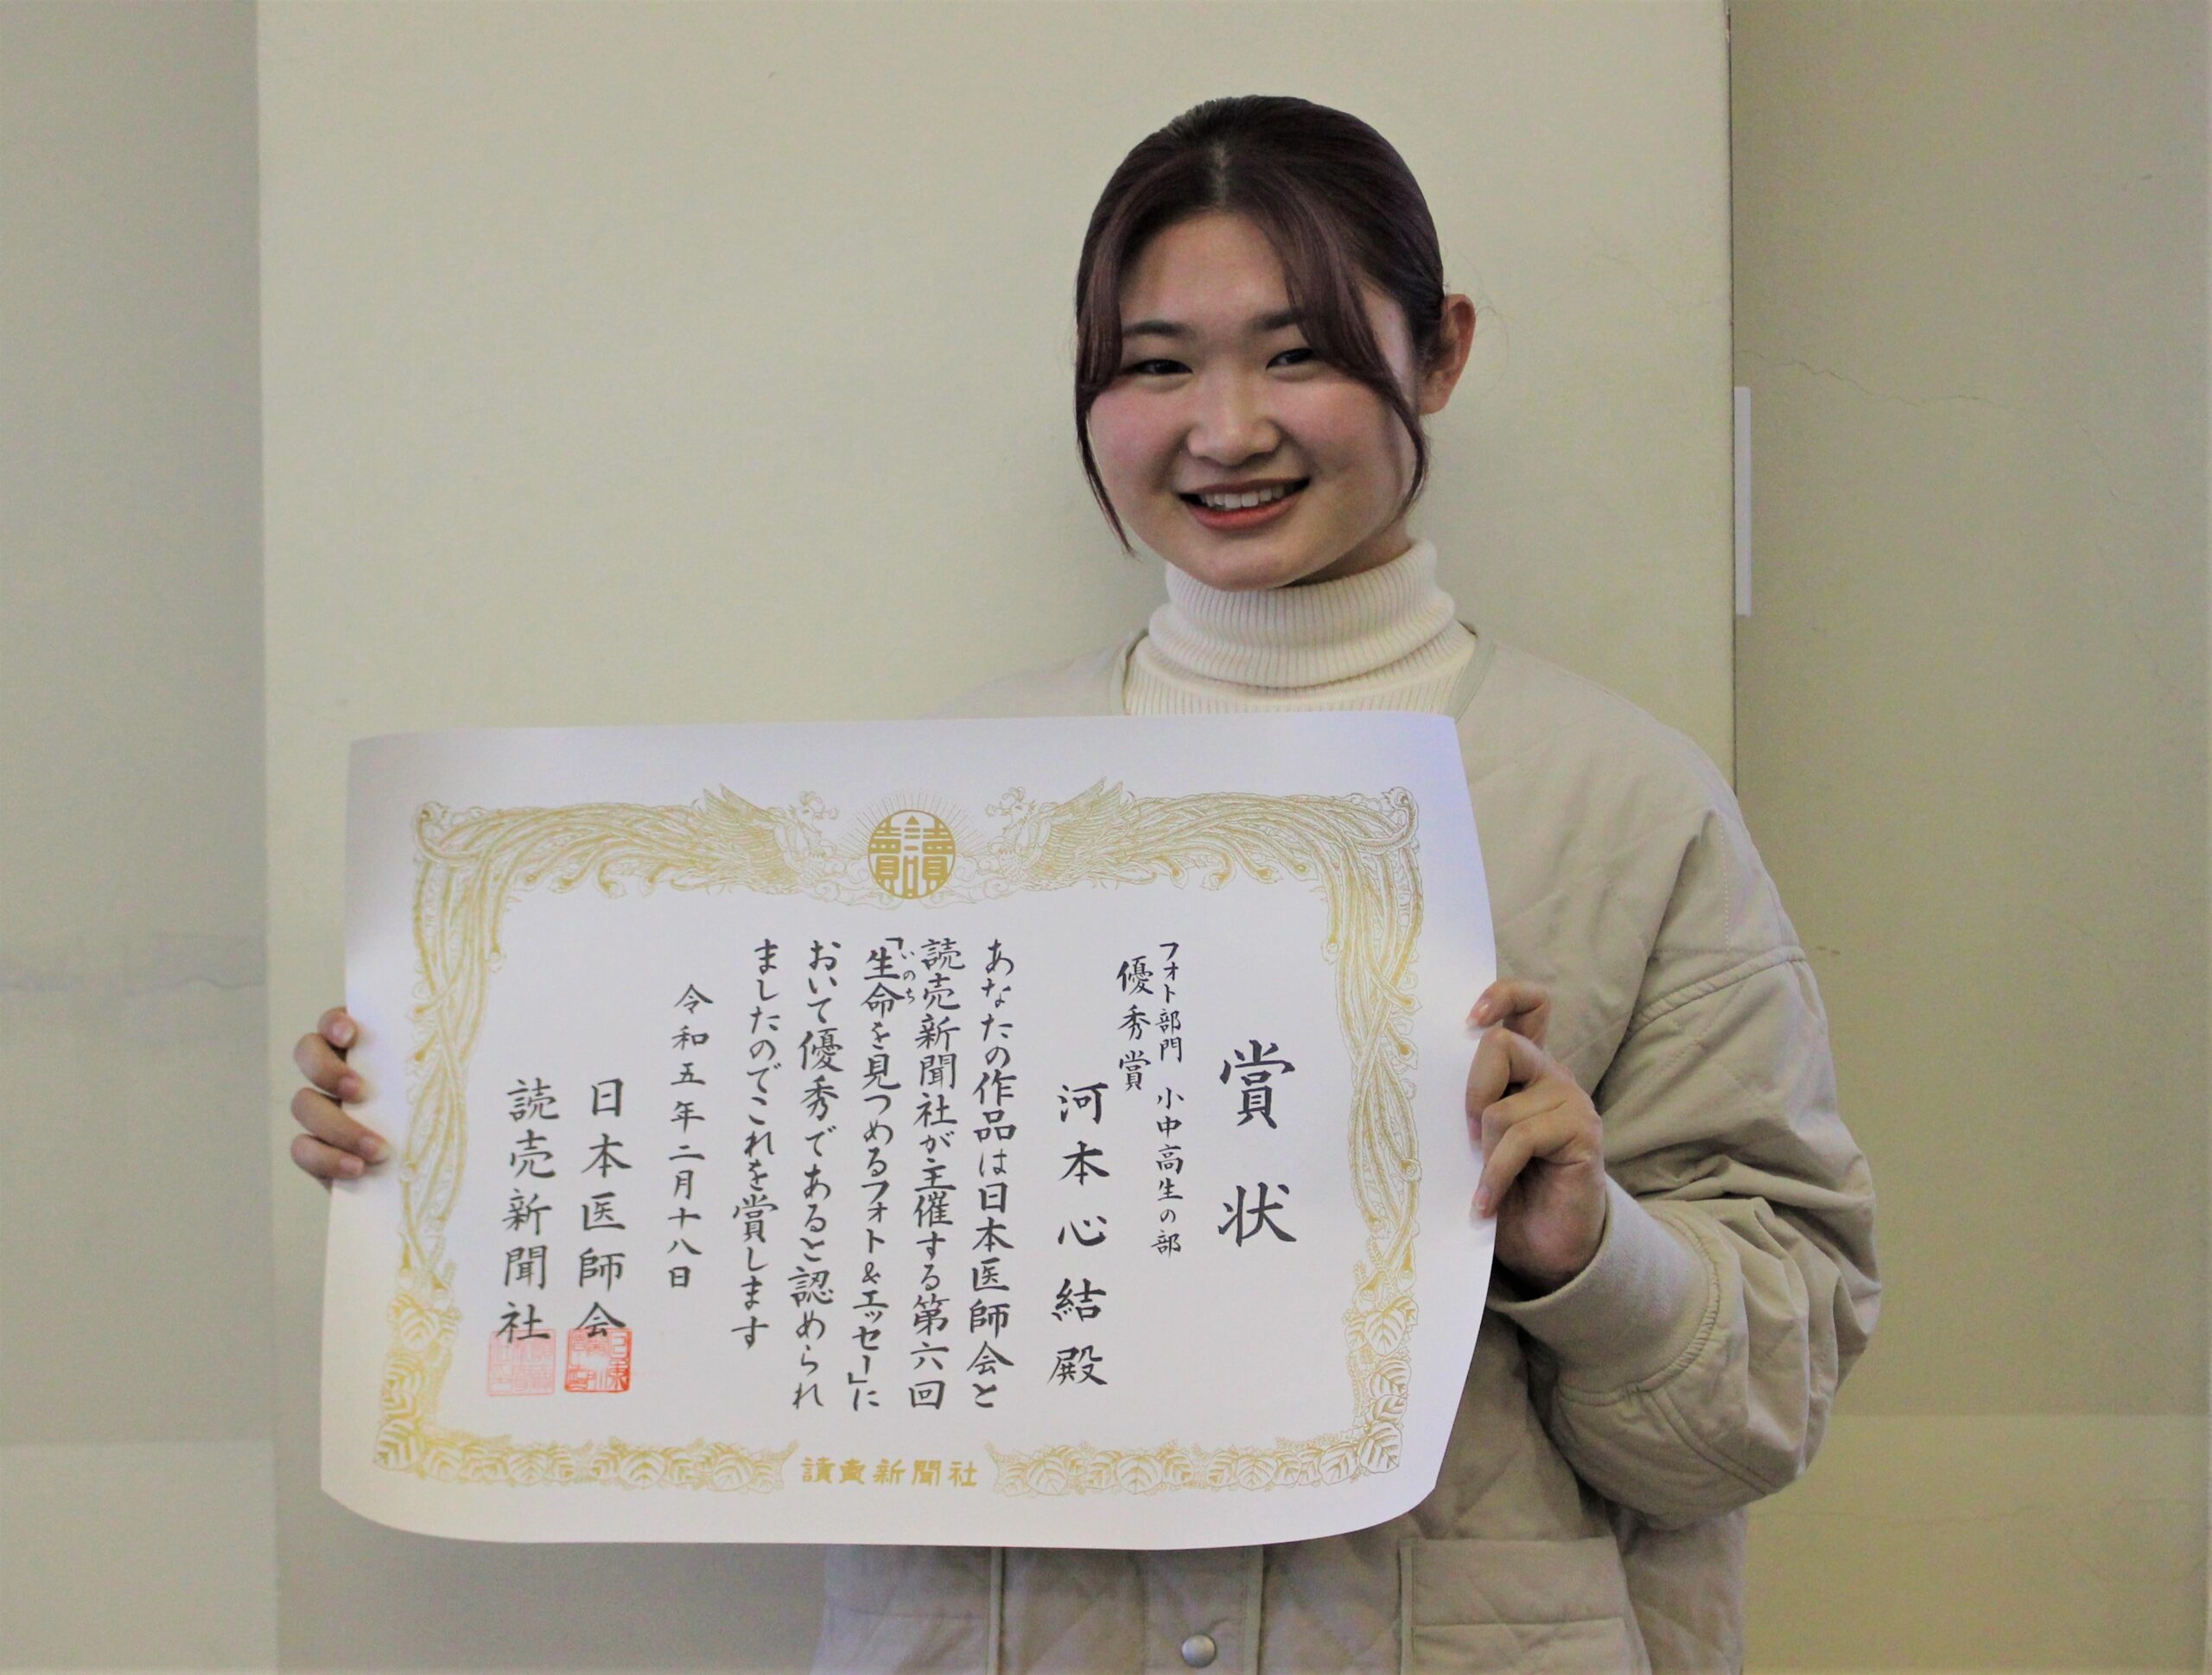 讀賣
賞状
フォト部門 小中高生の部
優秀賞
河本心結殿
あなたの作品は日本医師会と
読売新聞社が主催する第六回
「生命を見つめるフォト&エッセー」に
いのち
おいて優秀であると認められ
ましたのでこれを賞します
令和五年二月十八日
日本医師会
読売新聞社
讀賣新聞社